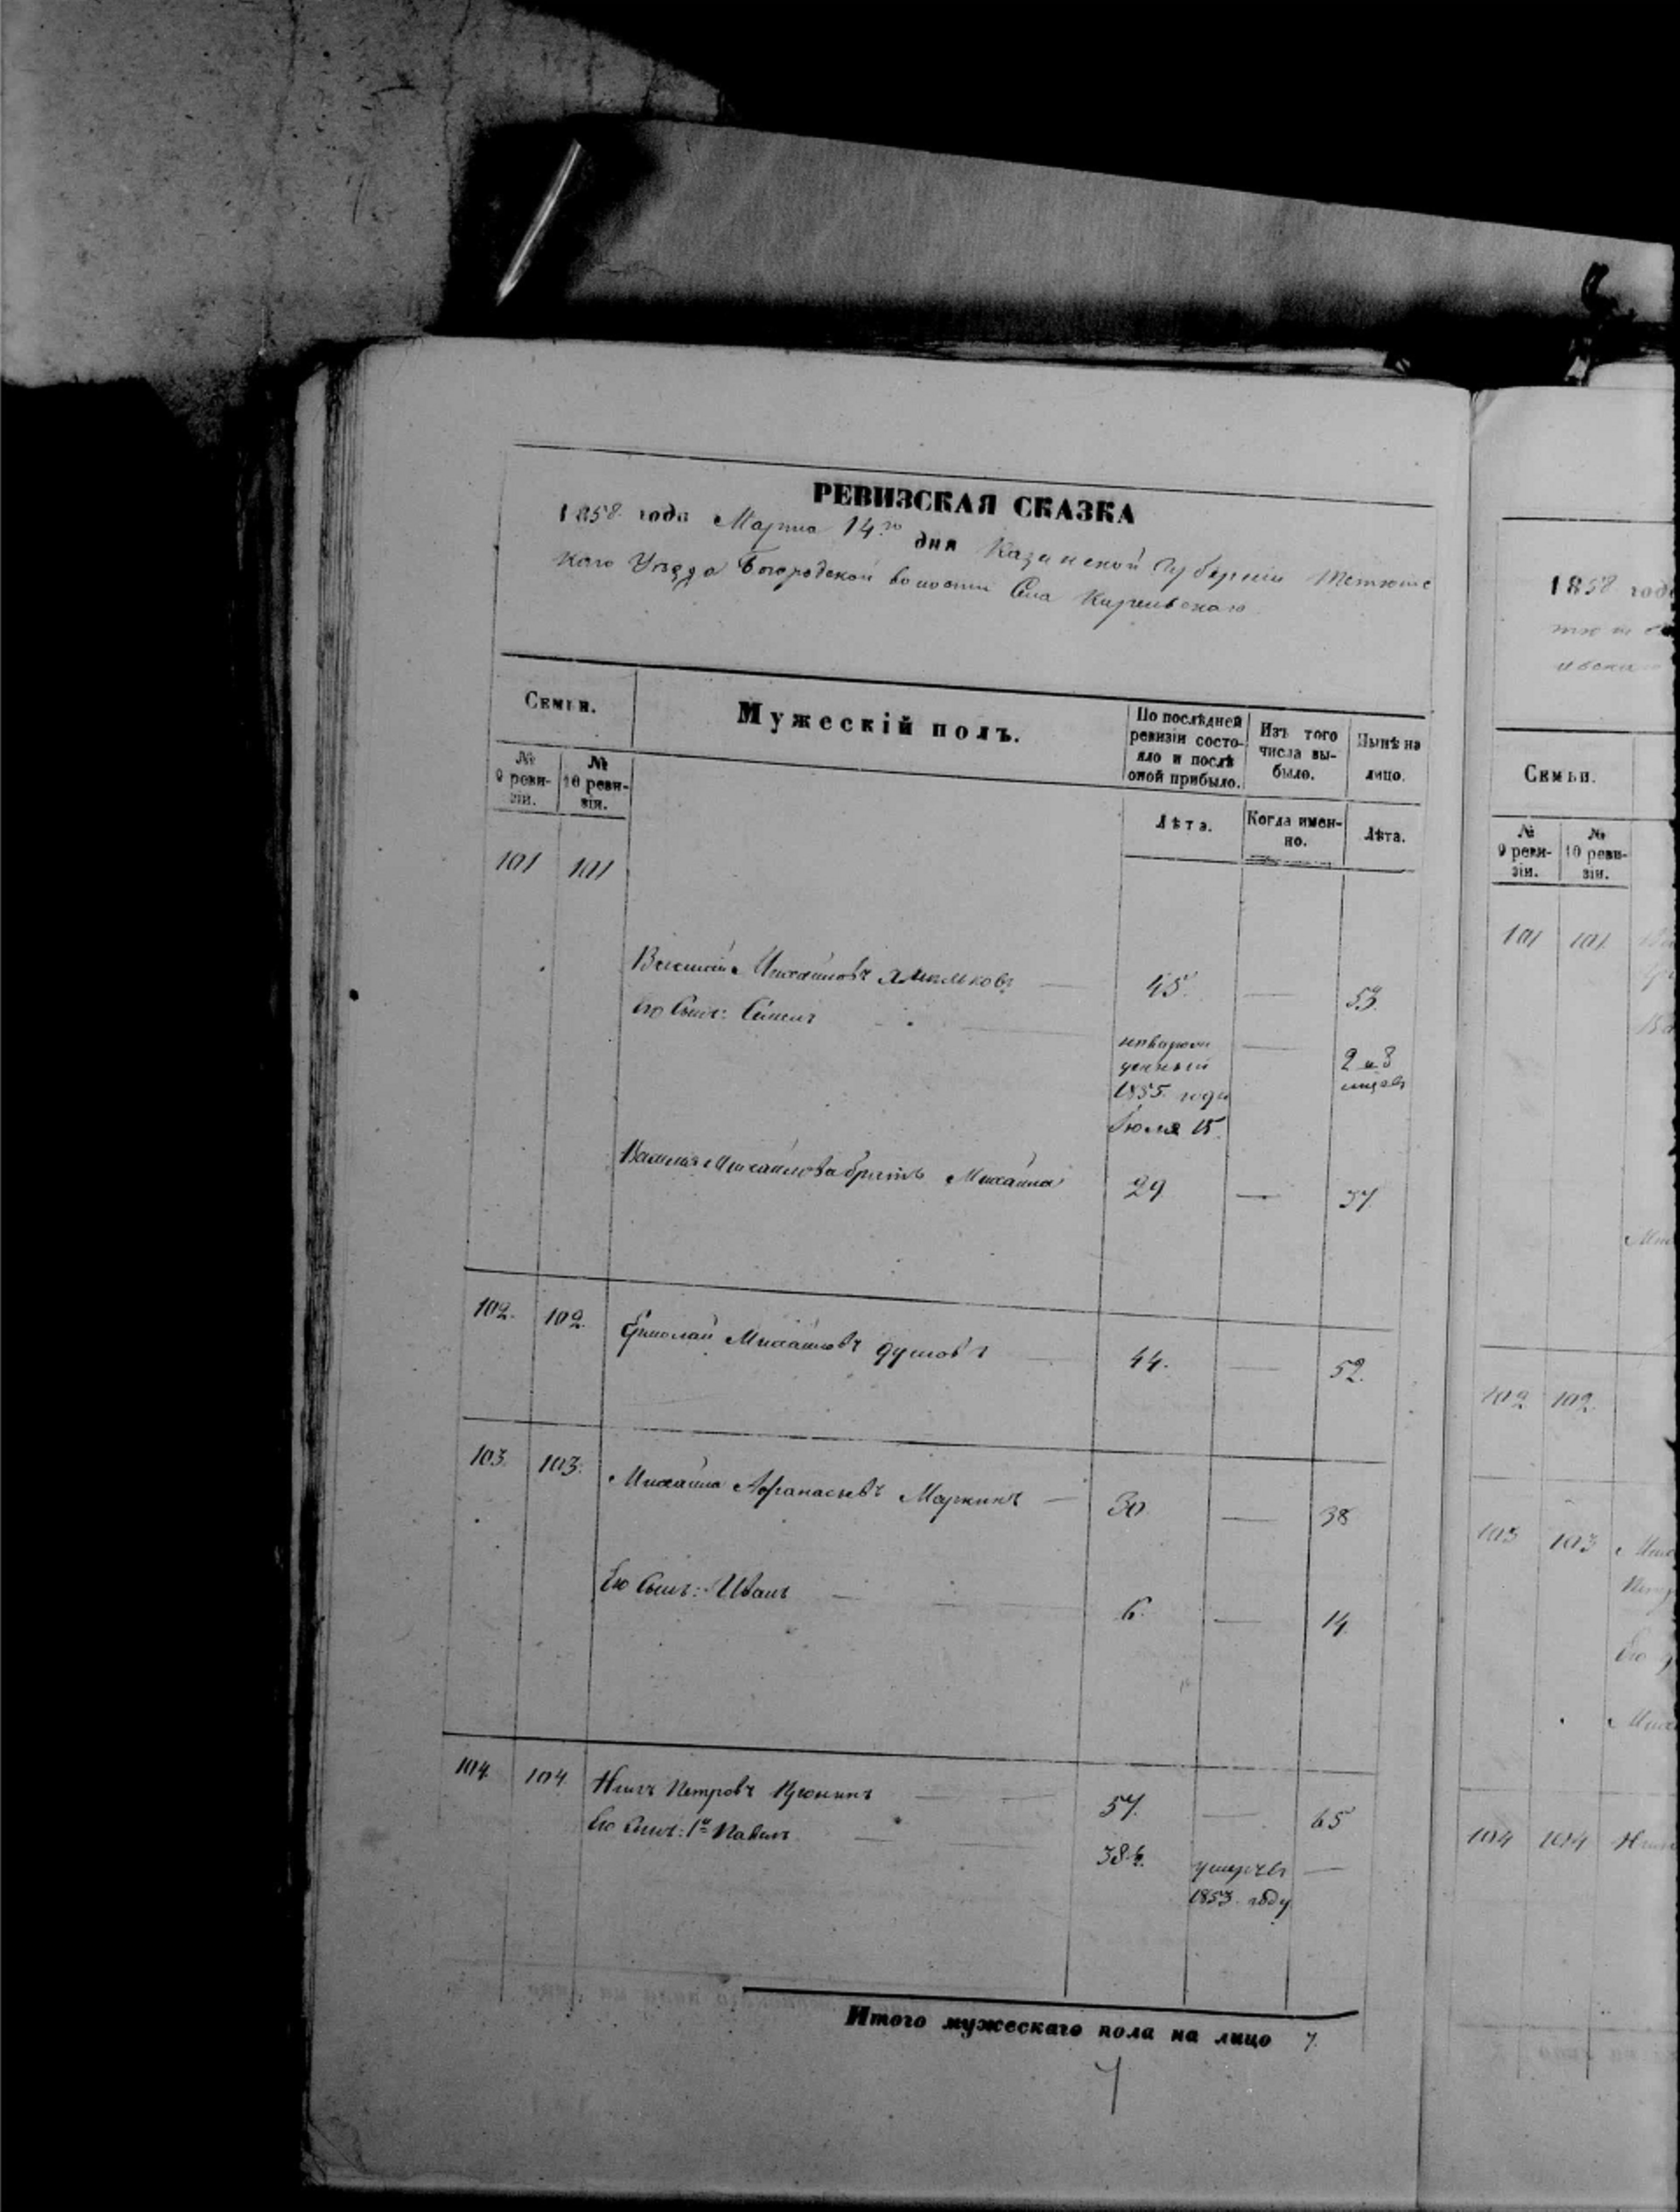 РЕВИЗСКАЯ СКАЗКА
1858 года Марта 14го дня Казанской Губерніи Тетюшс
каго Уѣзда Богородской волости Села Кирельскаго
Семьи.
Мужескій полъ.
По послѣдней ревизіи состояло и послѣ оной прибыло.
Изъ того числа выбыло.
Нынѣ на лицо.
№ 9 ревизіи.
№ 10 ревизіи.
Лѣта.
Когда именно.
Лѣта.
101 101
Василій Михайловъ 45. — 53.
Его Сынъ: Семенъ — новорожденный 1855. года Іюля 15. — 2 и 8 мѣсяц
Василья Михайлова братъ Михайла 29 — 37.
102. 102. Ермолай Михайловъ — 44. — 52.
103. 103. Михайла Афанасьевъ Маркинъ — 30 — 38
Его Сынъ: Иванъ — 6. — 14.
104. 104 Петровъ — 57. — 65
Его Сынъ: 1й Павелъ — 38. умеръ въ 1853. году —
Итого мужескаго пола на лицо 7.
7
1858 года
Семьи.
№ 9 ревизіи.
№ 10 ревизіи.
101 101
102 102.
103 103
Его
104 104